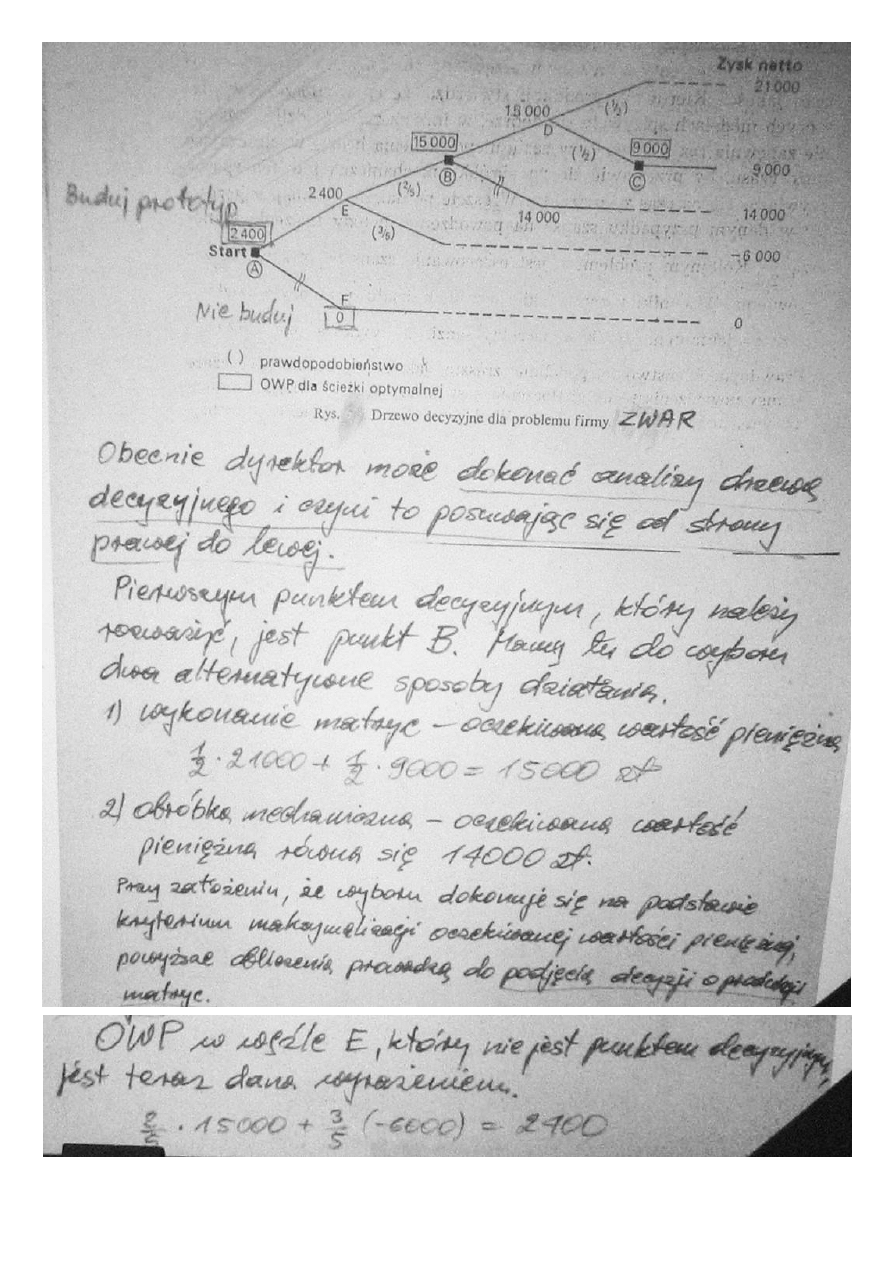 Zysk netto
21 000
15 000
(½)
D
15 000
(½)
9 000
9 000
B
C
Buduj prototyp
2 400
(⅖)
14 000
14 000
E
2 400
(⅗)
Start
-6 000
A
Nie buduj
F
0
0
( ) prawdopodobieństwo
OWP dla ścieżki optymalnej
Rys. Drzewo decyzyjne dla problemu firmy ZWAR
Obecnie dyrektor może dokonać analizy drzewa
decyzyjnego i czyni to posuwając się od strony
prawej do lewej.
Pierwszym punktem decyzyjnym, który należy
rozważyć, jest punkt B. Mamy tu do wyboru
dwa alternatywne sposoby działania.
1) wykonanie matryc – oczekiwana wartość pieniężna
½ · 21000 + ½ · 9000 = 15000 zł
2) obróbka mechaniczna – oczekiwana wartość
pieniężna równa się 14000 zł.
Przy założeniu, że wyboru dokonuje się na podstawie
kryterium maksymalizacji oczekiwanej wartości pieniężnej,
powyższe obliczenia prowadzą do podjęcia decyzji o produkcji
matryc.
OWP w węźle E, który nie jest punktem decyzyjnym,
jest teraz dana wyrażeniem.
⅖ · 15000 + ⅗ (-6000) = 2400